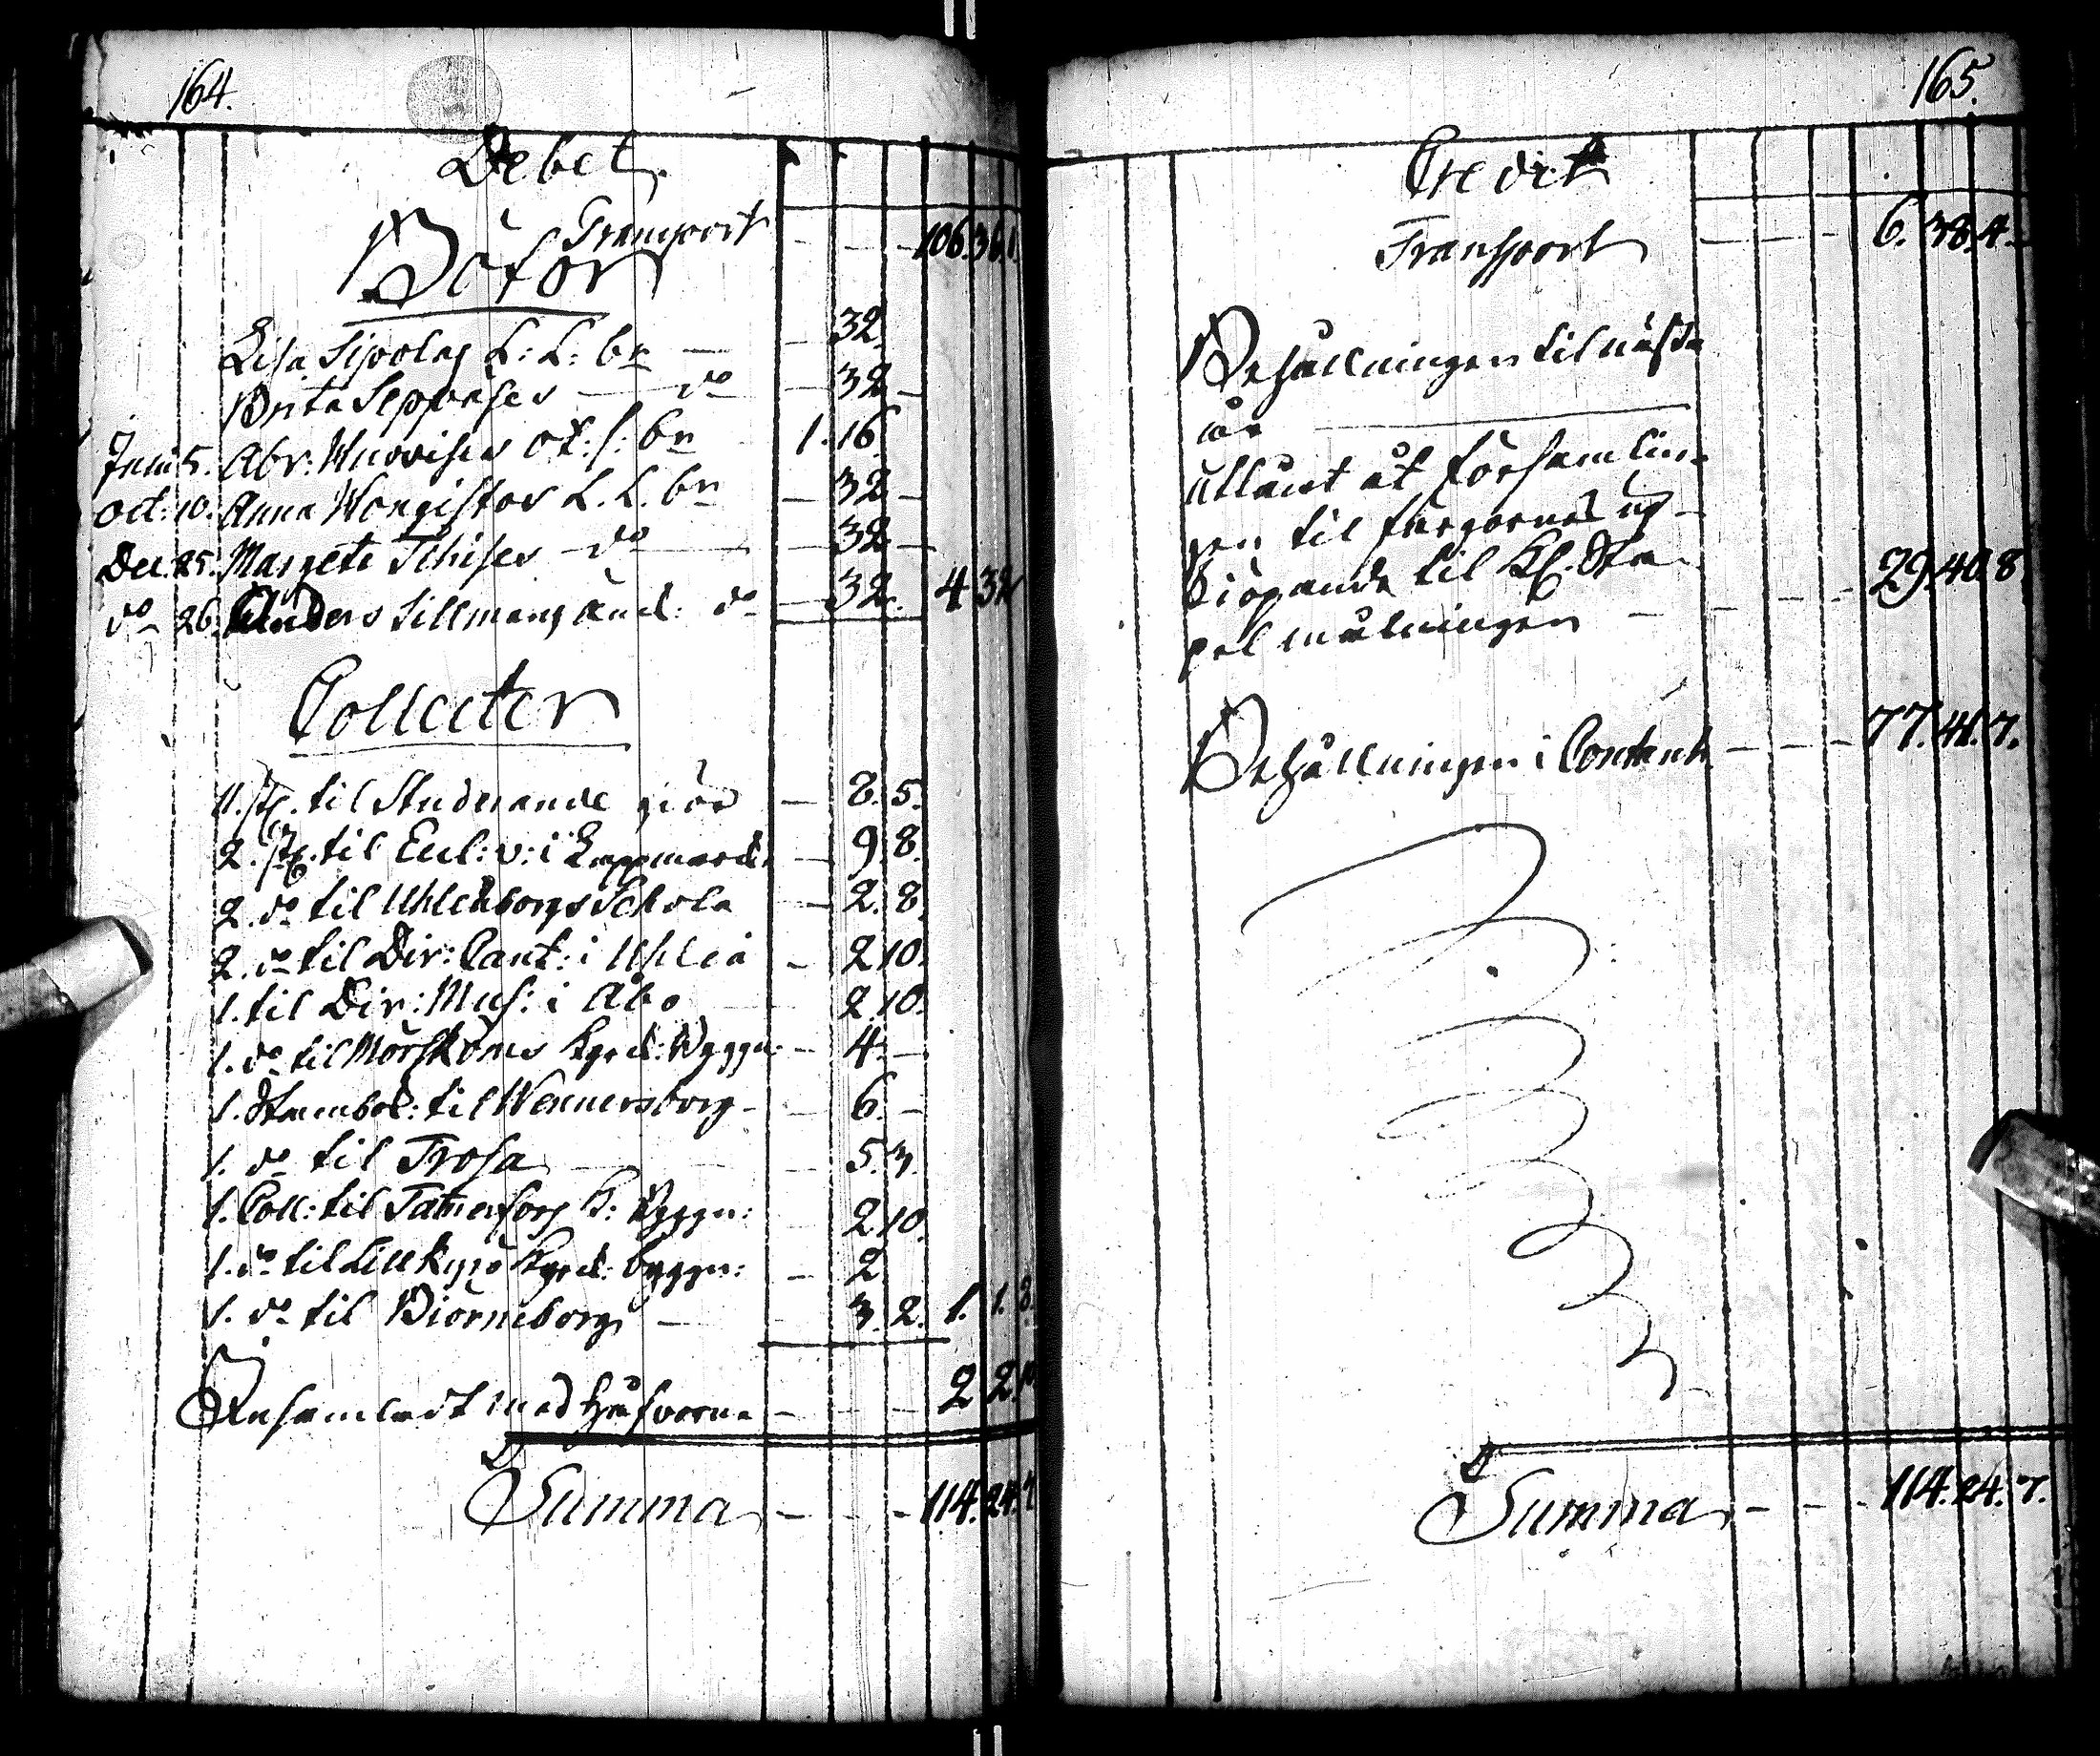 164.
Debet
Transport - - - 106.36.1.
Böter
Lisa Sipolas L: L: br - 32.
Brita Seppeses - do - 32 -
Junii 5. Abr: Wuorises ol: s: br 1.16.
Oct: 10. Anna Wongistos L. L. br - 32 -
Dec. 25. Margeta Tihises - do - 32 -
do 26. Anders Sillmans änck: do - 32. 4 32
Collecter
11. st. til Studerande giör - 8. 5.
2. st. til Eccl: v: i Lappmarck: - 9. 8.
2. do til Uhleåborgs Schola - 2. 8.
2. do til Dir: Cant: i Uhleå - 2 10.
1. til Dir: Mus: i Åbo 2. 10.
1. do til Mörskoms Kyrck: Byggn: - 4. -
1. Stambok: til Wennersborg - 6. -
1. do til Trosa 5. 3.
1. Coll: til Tammerfors K: Byggn: 2 10.
1. do til Lillkyro Kyrck: byggn: - 2
1. do til Biörneborg - 3. 2. 1. 1. 8.
Ansamladt med Håfvorne - - - 2 2. 10
Summa - - - 114. 24. 7
165.
Credit
Transport - - - 6. 38. 4.
Behållningen til nästa
år
Utlänt åt Församlin-
gen til färgornas up-
kiöpande til Kl. Sta-
pelmålningen - - - 29. 40. 8.
Behållningen i Contant - - - 77. 41. 7.
Summa - - - 114. 24. 7.